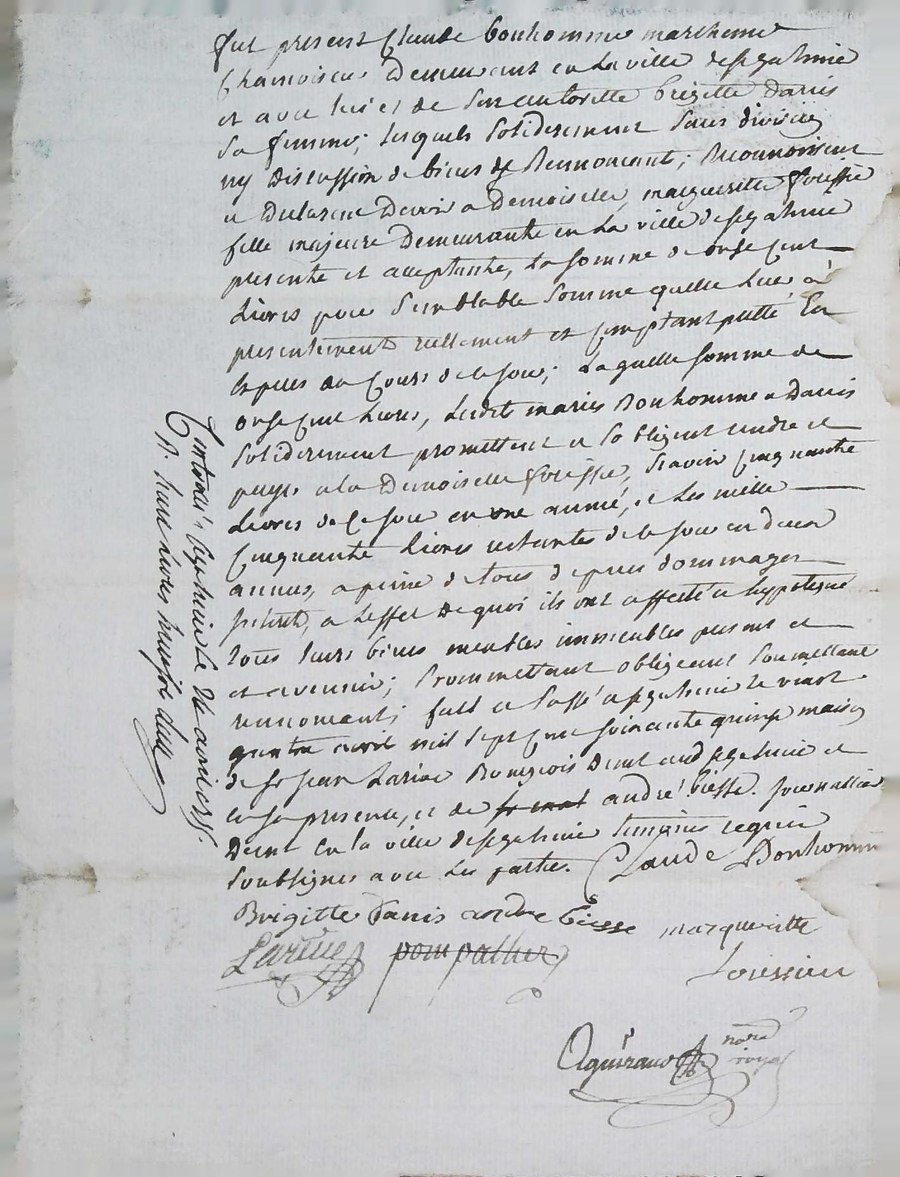 fut present Claude bonhomme marchand
Chamoiseur Demeurant en La ville de
et avec lui et de son autorité brigitte Danis
Sa femme; lesquels Soliderement Sans division
ny Discussion de biens y Rennoncant; Reconnoissent
et Declarent Devoir a Demoiselle marguerite
fille majeure Demeurante en La ville de
presente et acceptante, La somme de onse cent
Livres pour Semblable Somme quelle Leur à
presentement reellement et Comptant pretté En
Especes du Cours de ce jour; Laquelle Somme de
onse cent Livres, Lesdits mariés Bonhomme et Danis
Soliderement promettent et Sobligent rendre et
payer a la Demoiselle Scavoir Cinquante
Livres de Ce jour en une année, et Les mille
Cinquante Livres restantes de ce jour en deux
années, a peine de tous depens dommages
interets, a Leffet de quoi ils ont affecté et hypotequé
tous Leurs biens meubles immeubles presents et
et avennir; Promettant obligeant Soumettant
rennoncant; fait et Passé a le vingt
quatre avril mil Sept cent soixante quinze maison
de Sr jean Larive Bourgeois Demt aud et
en sa presence, et de andré biesse
Demt En la ville de temoins requis
Soubsignes avec Les parties. Claude Bonhomme
Brigitte Danis andre biesse marguerite
Larive
not.re
royal